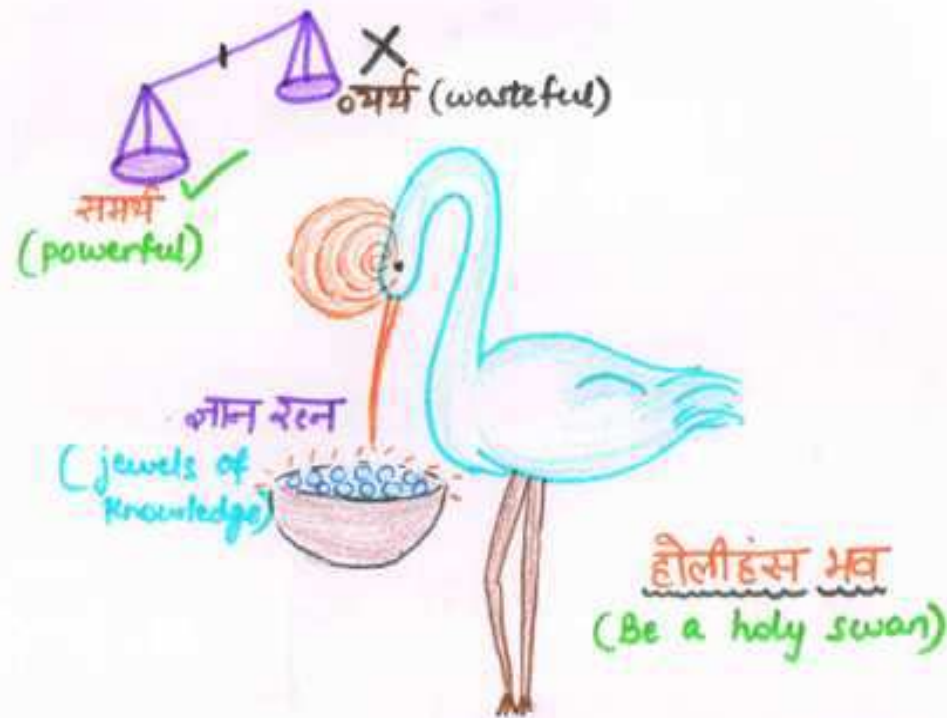 व्यर्थ (wasteful)
समर्थ
(powerful)
ज्ञान रत्न
(jewels of
knowledge)
होलीहंस भव
(Be a holy swan)